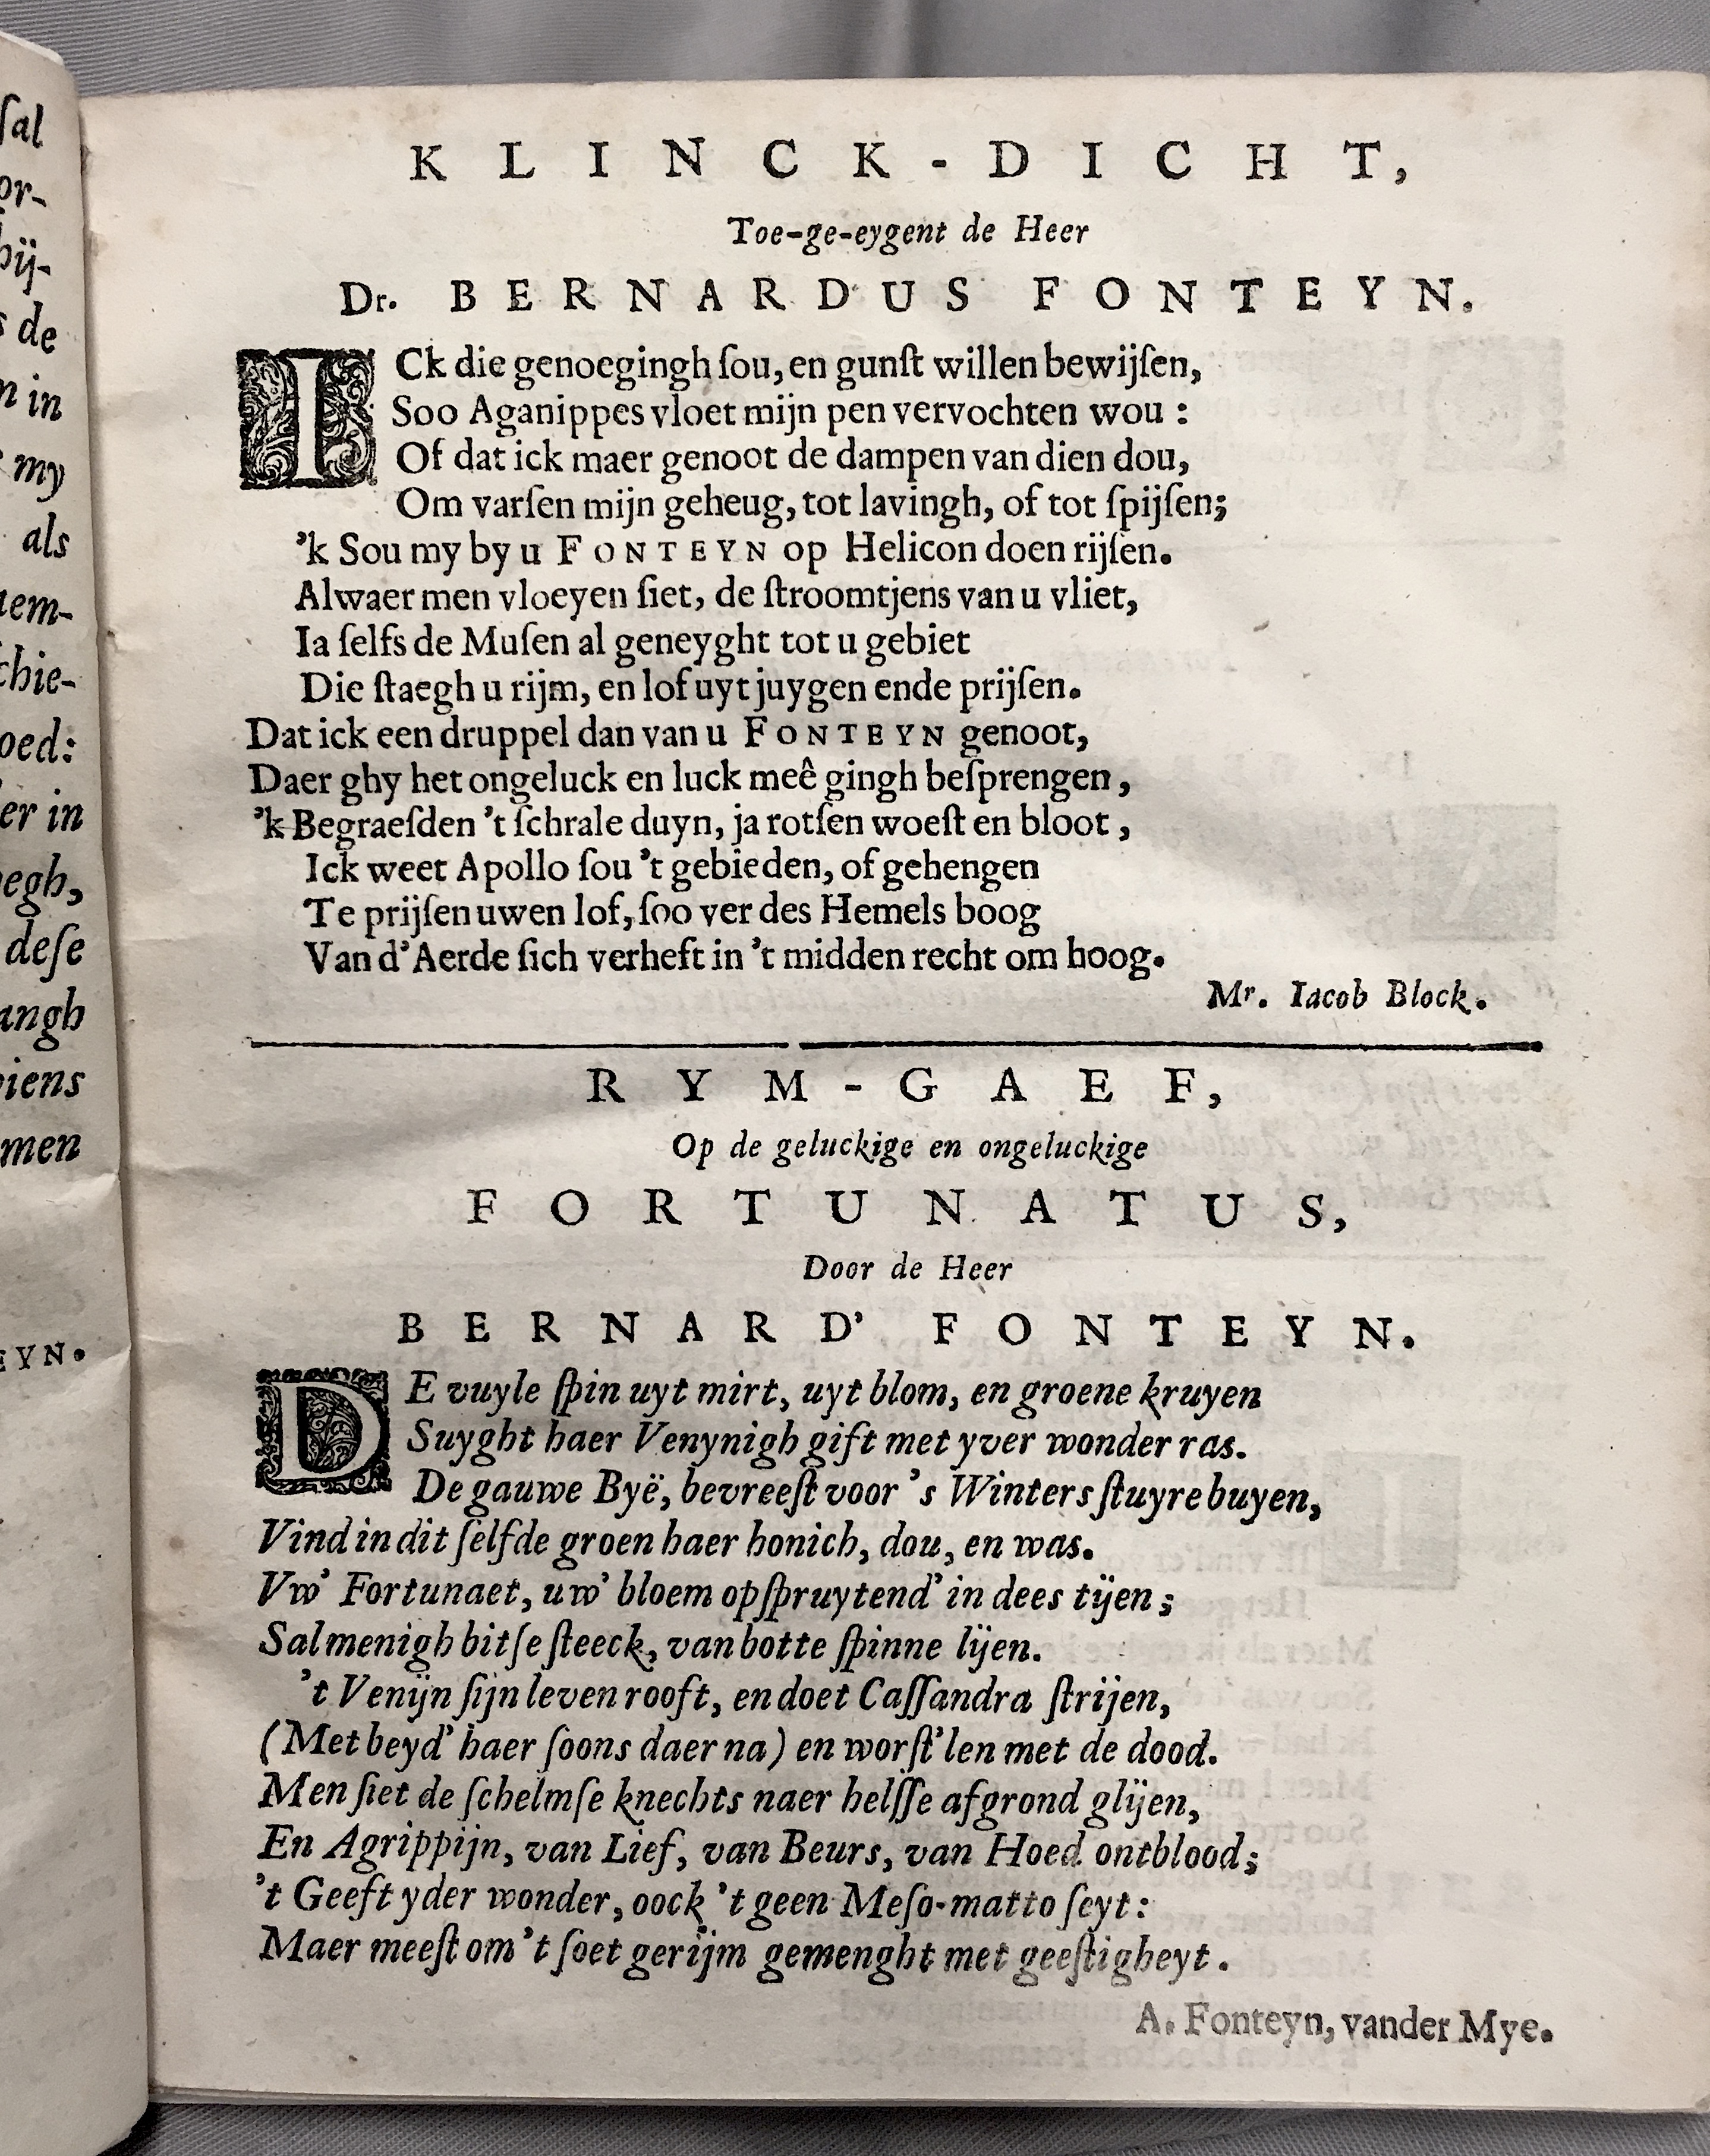 KLINCK-DICHT,
Toe-ge-eygent de Heer
Dr. BERNARDUS FONTEYN.
ICk die genoegingh ſou, en gunſt willen bewijſen,
Soo Aganippes vloet mijn pen vervochten wou :
Of dat ick maer genoot de dampen van dien dou,
Om varſen mijn geheug, tot lavingh, of tot ſpijſen;
'k Sou my by u FONTEYN op Helicon doen rijſen.
Alwaer men vloeyen ſiet, de ſtroomtjens van u vliet,
Ia ſelfs de Muſen al geneyght tot u gebiet
Die ſtaegh u rijm, en lof uyt juygen ende prijſen.
Dat ick een druppel dan van u FONTEYN genoot,
Daer ghy het ongeluck en luck meê gingh beſprengen,
'k Begraeſden 't ſchrale duyn, ja rotſen woeſt en bloot,
Ick weet Apollo ſou 't gebieden, of gehengen
Te prijſen uwen lof, ſoo ver des Hemels boog
Van d'Aerde ſich verheft in 't midden recht om hoog.
Mr. Iacob Block.
RYM-GAEF,
Op de geluckige en ongeluckige
FORTUNATUS,
Door de Heer
BERNARD' FONTEYN.
DE vuyle ſpin uyt mirt, uyt blom, en groene kruyen
Suyght haer Venynigh gift met yver wonder ras.
De gauwe Byë, bevreeſt voor 's Winters ſtuyre buyen,
Vind in dit ſelfde groen haer honich, dou, en was.
Vw' Fortunaet, uw' bloem opſpruytend' in dees tijen;
Sal menigh bitſe ſteeck, van botte ſpinne lijen.
't Venijn ſijn leven rooft, en doet Caſſandra ſtrijen,
(Met beyd' haer ſoons daer na) en worſt'len met de dood.
Men ſiet de ſchelmſe knechts naer helſſe afgrond glijen,
En Agrippijn, van Lief, van Beurs, van Hoed ontblood;
't Geeft yder wonder, oock 't geen Meſo-matto ſeyt:
Maer meeſt om 't ſoet gerijm gemenght met geeſtigheyt.
A. Fonteyn, vander Mye.
ſal
or-
hij-
s de
n in
my
als
aem-
chie-
oed:
er in
egh,
deſe
angh
iens
men
EYN.